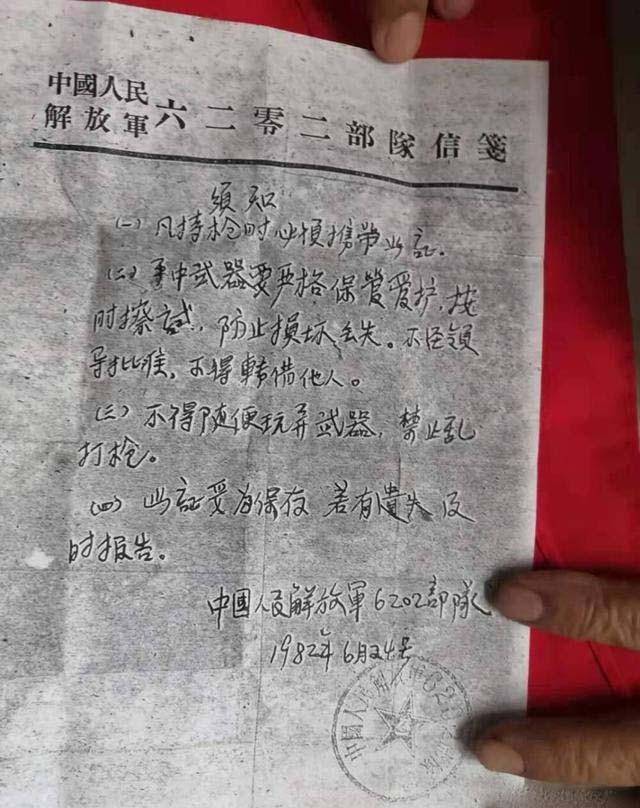 中國人民
解放軍六二零二部隊信箋
须知
(一) 凡持枪时必須携带此証。
(二) 手中武器要严格保管爱护，按
时擦试，防止损坏丢失。不经领
导批准，不得轉借他人。
(三) 不得随便玩弄武器，禁止乱
打枪。
(四) 此証妥为保存 若有遺失及
时报告。
中國人民解放軍6202部隊
1982年6月24号
中國人民解放軍